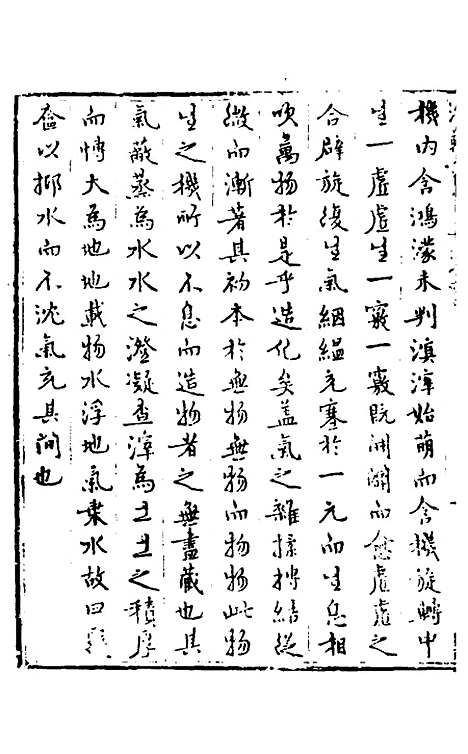 機内含鴻濛未判滇涬始萌而含機旋轉中
生一虛虛生一竅一竅既開闢而愈虛虛之
合辟旋復生氣絪緼充塞於一元而生息相
吹萬物於是乎造化矣蓋氣之雜揉摶結從
微而漸著其初本於無物無物而物物此物
生之機所以不息而造物者之無盡藏也其
氣蔽蒸為水水之澄凝查滓為土土之積厚
而博大為地地載物水浮地氣乗水故曰
奩以抑水而不沈氣充其間也